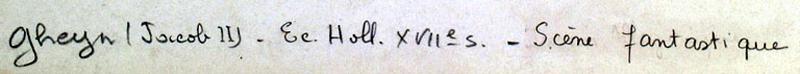 Gheyn (Jacob II) - Ec. Holl. XVIIe s. - Scène fantastique